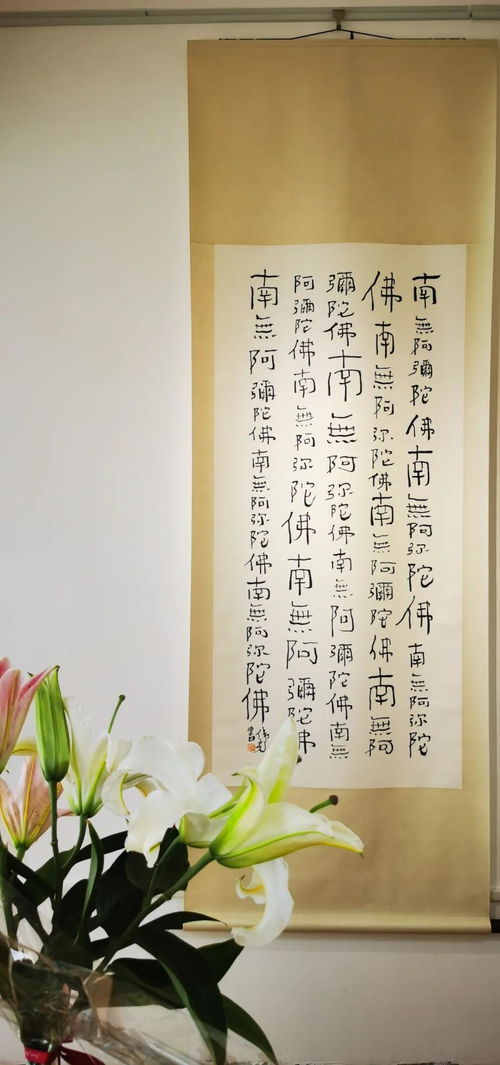 南無阿彌陀佛南無阿弥陀佛南無阿弥陀
佛南無阿弥陀佛南無阿彌陀佛南無阿
彌陀佛南無阿弥陀佛南無阿彌陀佛南無
阿彌陀佛南無阿弥陀佛南無阿彌陀佛
南無阿彌陀佛南無阿弥陀佛南無阿弥陀佛